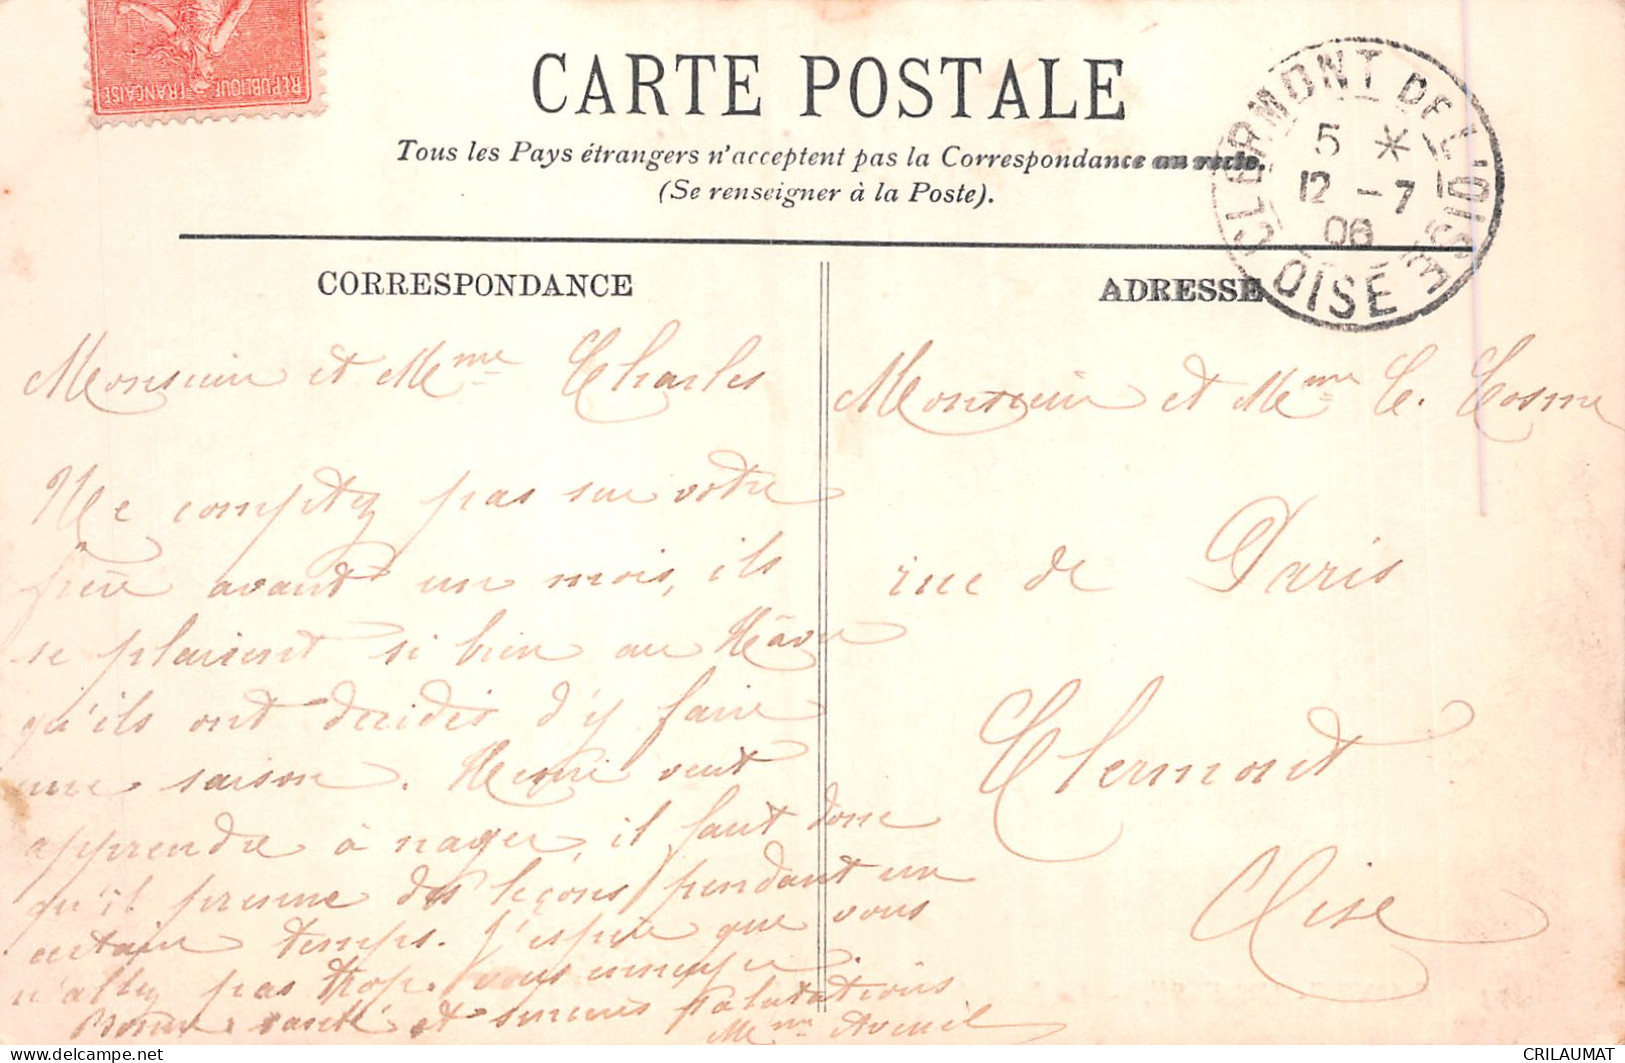 REPUBLIQUE FRANÇAISE
CARTE POSTALE
Tous les Pays étrangers n'acceptent pas la Correspondance au recto.
(Se renseigner à la Poste).
CLERMONT DE L'OISE
5 *
12 - 7
06
OISE
CORRESPONDANCE
Monsieur et Mme Charles
Ne comptez pas sur votre
frère avant un mois, ils
se plaisent si bien au Hâvre
qu'ils ont décidés d'y faire
une saison. Henri veut
apprendre à nager, il faut donc
qu'il prenne des leçons pendant un
certain temps. J'espère que vous
n'allez pas trop vous ennuyer.
Bonne santé et sincères salutations
Mme
ADRESSE
Monsieur et Mme C. Cosme
rue de Paris
Clermont
Oise
CRILAUMAT